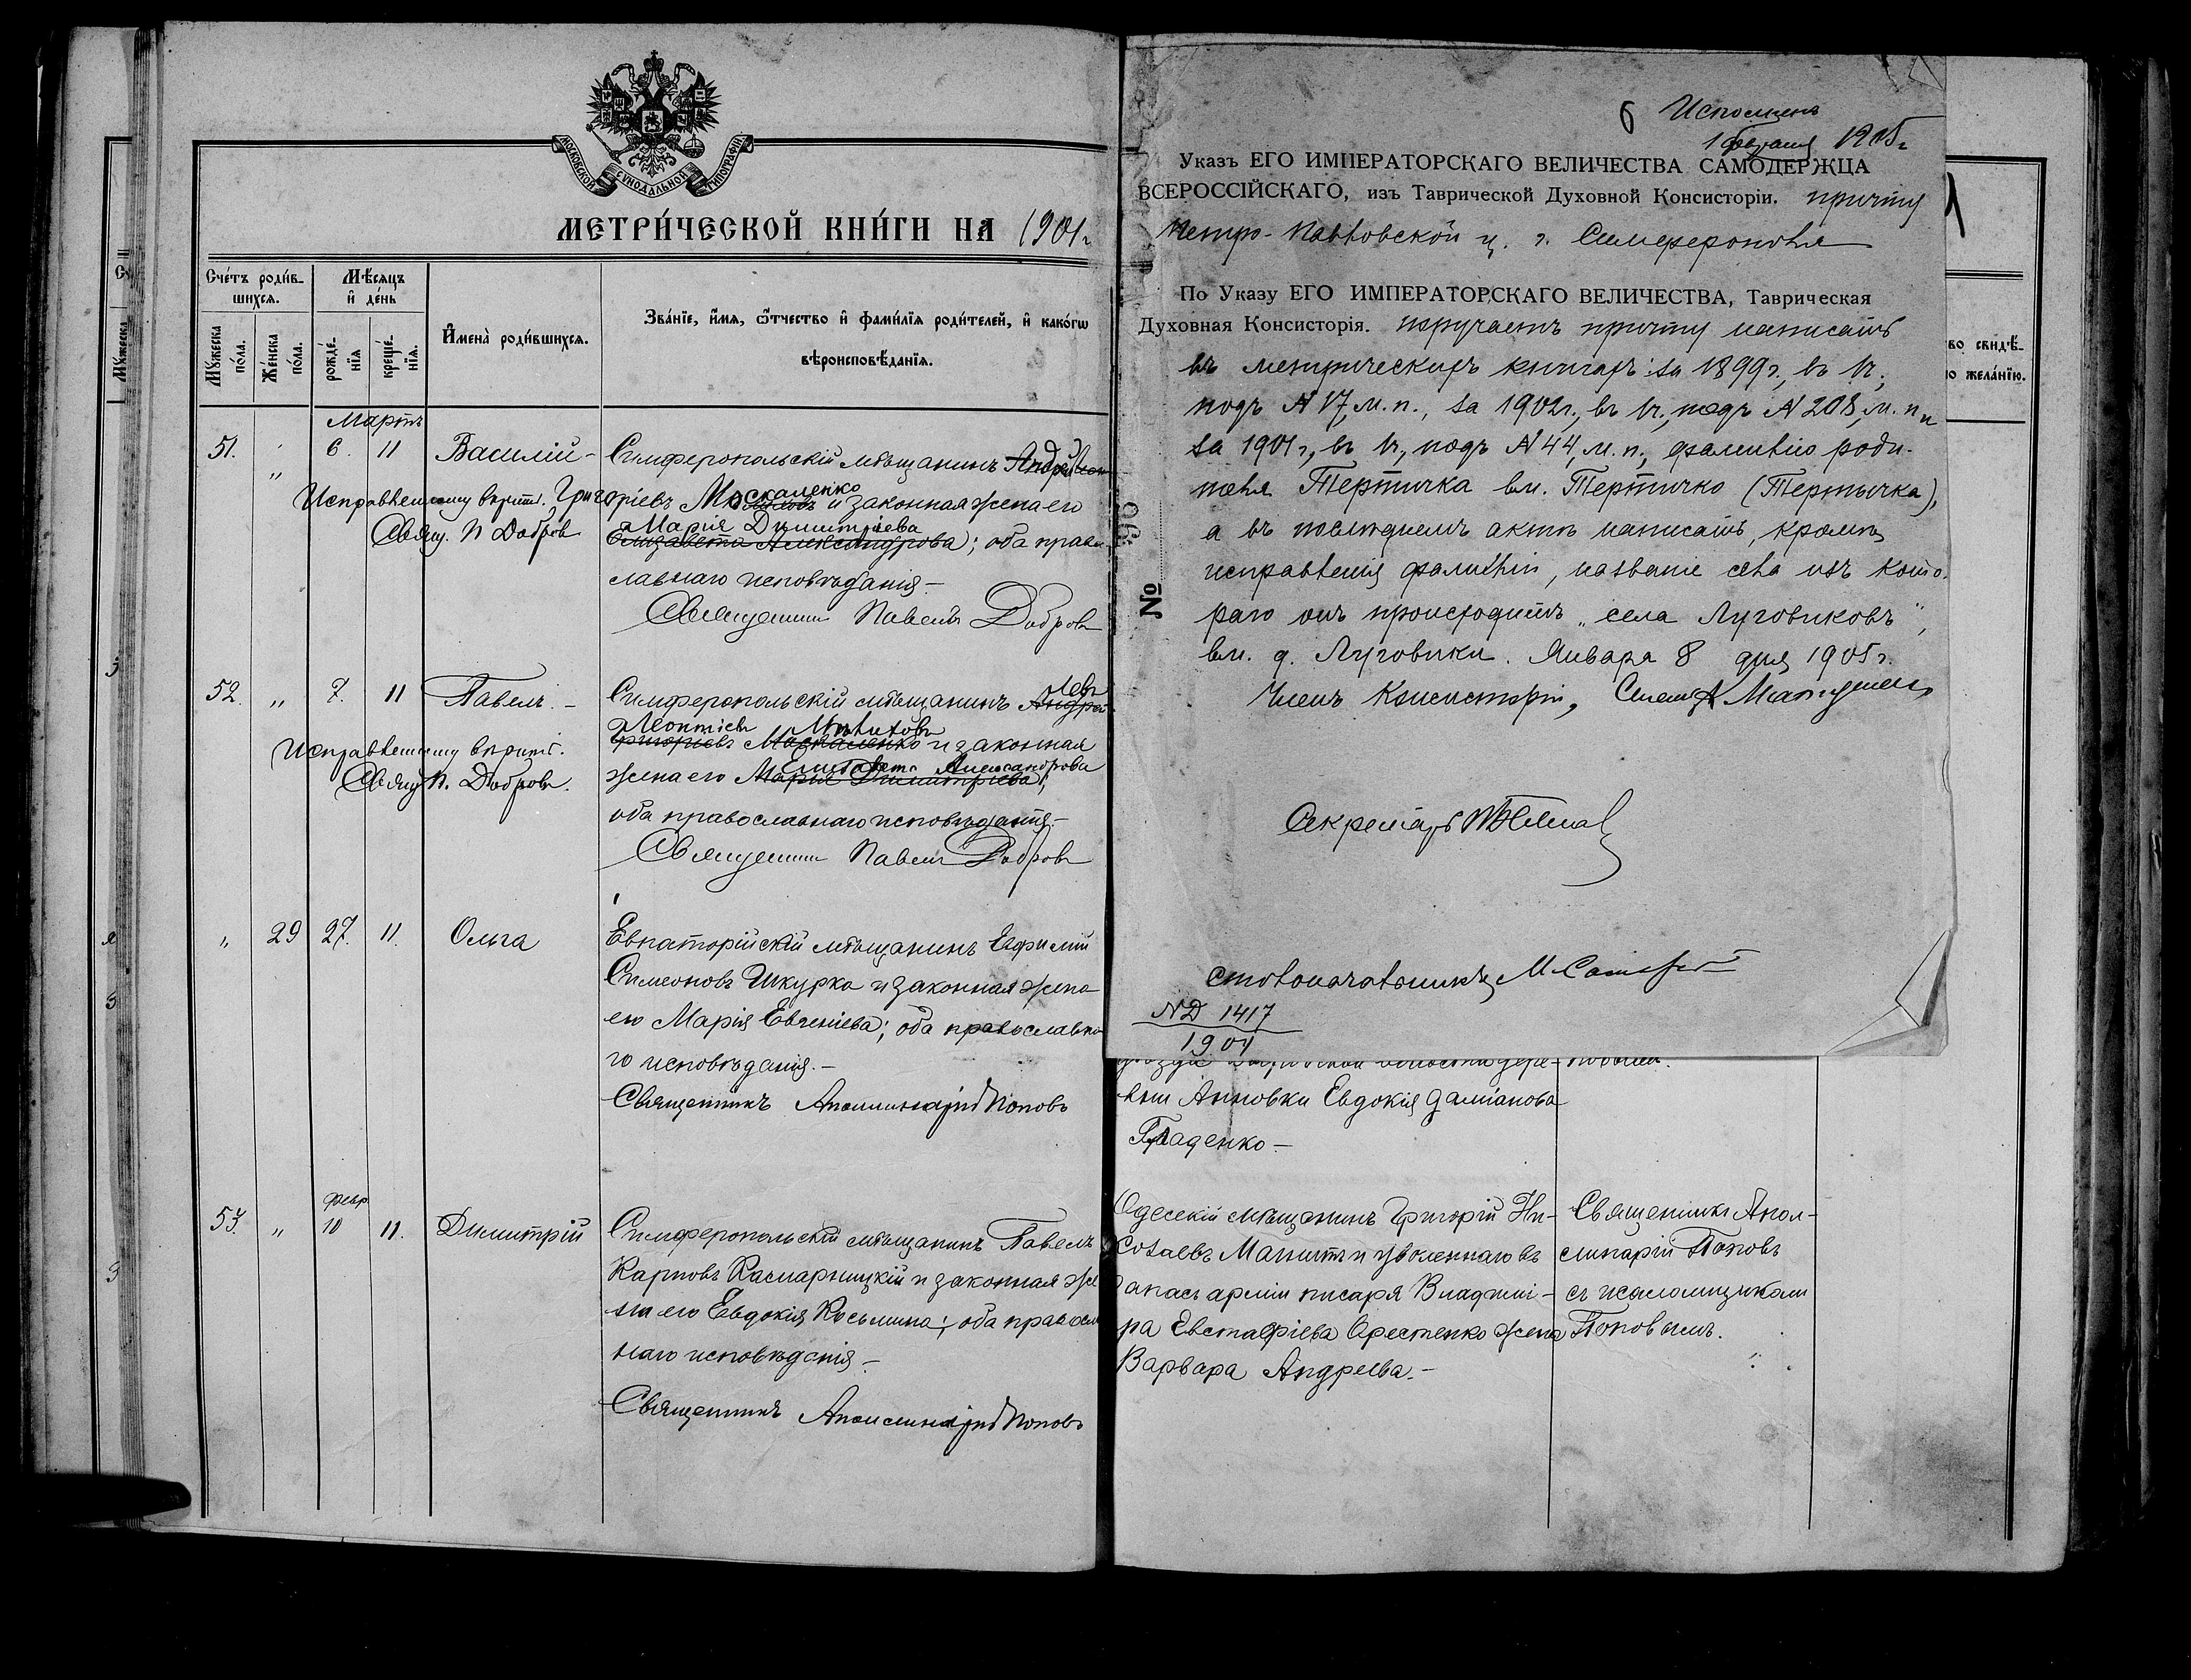 МОСКОВСКОЙ СѴНОДАЛЬНОЙ ТИПОГРАФІИ
МЕТРИ́ЧЕСКОЙ КНИ́ГИ НА 1901 г.
Сче́тъ роди́в-
шихсѧ.
Мѣ́сѧцъ
и҆ де́нь
Мꙋ́жеска
по́ла.
Же́нска
по́ла.
рожде́-
нїѧ
креще́-
нїѧ.
И҆мена̀ роди́вшихсѧ.
Зва́нїе, и҆́мѧ, ѻ҆́тчество и҆ фами́лїѧ роди́телей, и҆ како́гѡ
вѣроисповѣ́данїѧ.
Мартъ
51. „ 6. 11 Василій - Симферопольскій мѣщанинъ Андрей
Исправленному вѣрить. Григоріевъ Москаленко и законная жена его
Свящ. П Добровъ Марія Димитріева
Елизавета Александрова; оба право
славнаго исповѣданія. -
Священникъ Павелъ Добровъ
52. „ 7. 11 Павелъ. - Симферопольскій мѣщанинъ Левъ
Андрей
Леонтіевъ
Григоріевъ Москаленко и законная
Исправленному вѣрить.
Свящ. П. Добровъ.
Елизавета Александрова
жена его Марія Димитріева;
оба православнаго исповѣданія. -
Священникъ Павелъ Добровъ
„ 29 27. 11. Ольга Евпаторійскій мѣщанинъ Евфимій
Симеоновъ Шкурка и законная жена
его Марія Евгеніева; оба православна
го исповѣданія. -
Священникъ Аполлинарій Поповъ
февр.
53. „ 10 11. Димитрій Симферопольскій мѣщанинъ Павелъ
Карповъ и законная же
на его Евдокія Косьмина; оба правосл
наго исповѣданія -
Священникъ Аполлинарій Поповъ
6 Исполненъ
1 февраля 1905 г.
Указъ ЕГО ИМПЕРАТОРСКАГО ВЕЛИЧЕСТВА САМОДЕРЖЦА
ВСЕРОССІЙСКАГО, изъ Таврической Духовной Консисторіи. причту
Петро-Павловской ц. г. Симферополя
По Указу ЕГО ИМПЕРАТОРСКАГО ВЕЛИЧЕСТВА, Таврическая
Духовная Консисторія. поручаетъ причту написать
въ метрическихъ книгахъ: за 1899 г., въ 1ч.,
подъ № 17, м. п., за 1902 г., въ 1ч., подъ № 208, м. п. и
за 1901 г., въ 1ч., подъ № 44, м. п., фамилію роди-
теля Тертичка вм. Тертичко (Тертычка),
а въ послѣднемъ актѣ написать, кромѣ
исправленія фамиліи, названіе села изъ кото-
раго онъ происходитъ „села Луговиковъ",
вм. д. Луговики. Января 8 дня 1905 г.
Членъ Консисторіи,
Секретарь
Столоначальникъ
№
№Д 1417
1904
во свидѣ-
по жела́нїю.
вни Анновки Евдокія Даміанова
Гладенко -
Одесскій мѣщанинъ Григорій Ни-
колаевъ и уволеннаго въ
запасъ арміи писаря Владими-
ра Евстафіева Орестенко жена
Варвара Андреева. -
Священникъ Апол-
линарій Поповъ
съ псаломщикомъ
Поповымъ.